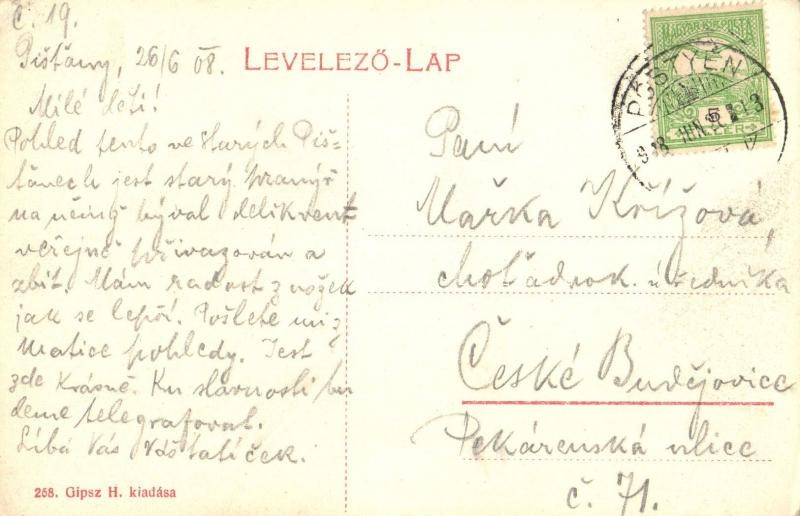 č. 19.
Pišťany, 26/6 08.
LEVELEZŐ-LAP
Milé děti!
Pohled tento ve starých Piš-
ťanech jest starý pranýř
na němž býval delikvent
veřejně přivazován a
zbit. Mám radost z nožek
jak se lepší. Pošlete mi z
Matice pohledy. Jest
zde krásně. Ku slavnosti bu
deme telegrafovat.
Líbá Vás Váš tatíček.
258. Gipsz H. kiadása
MAGYAR KIR. POSTA
5
FILLÉR
PÖSTYÉN
Paní
Mařka Křížová,
choť adrok. úředníka
České Budějovice
Pekárenská ulice
č. 71.